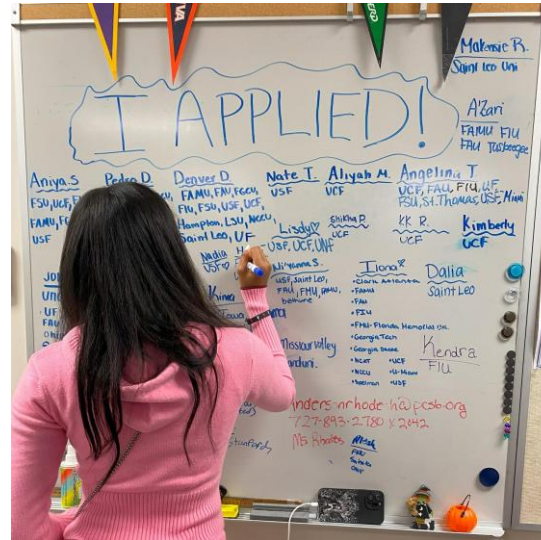 VA
Makenzie R.
Saint Leo Uni
I APPLIED!
A'Zari
FAMU FIU
FAU Tuskegee
Aniya.S
FSU, UCF,
FAMU,
USF
Pedro D.
Denver D
FAMU, FMU, FGCU,
FIU, FSU, USF, UCF,
Hampton, LSU, NCCU,
Saint Leo, UF
Nate T.
USF
Aliyah M.
UCF
Angelina T.
UCF, FAU, FIU, UF
FSU, St. Thomas, USF, Miami
Nadia
USF
Lisdy
USF, UCF, UNF
Shikha P.
UCF
KK R.
UCF
Kimberly
UCF
Ni'yanna S.
USF, Saint Leo,
FAU, FMU, FAMU,
bethune
Iiona
•Clark Atlanta
•FAMU
•FAU
•FIU
•FMU-Florida Memorial Uni.
•Georgia Tech
•Georgia State
•NCAT •UCF
•NCCU •U-Miami
•Spelman •USF
Dalia
Saint Leo
Kendra
FIU
Missouri Valley
727-893-2780 x 2042
Ms Rhodes
Stanford